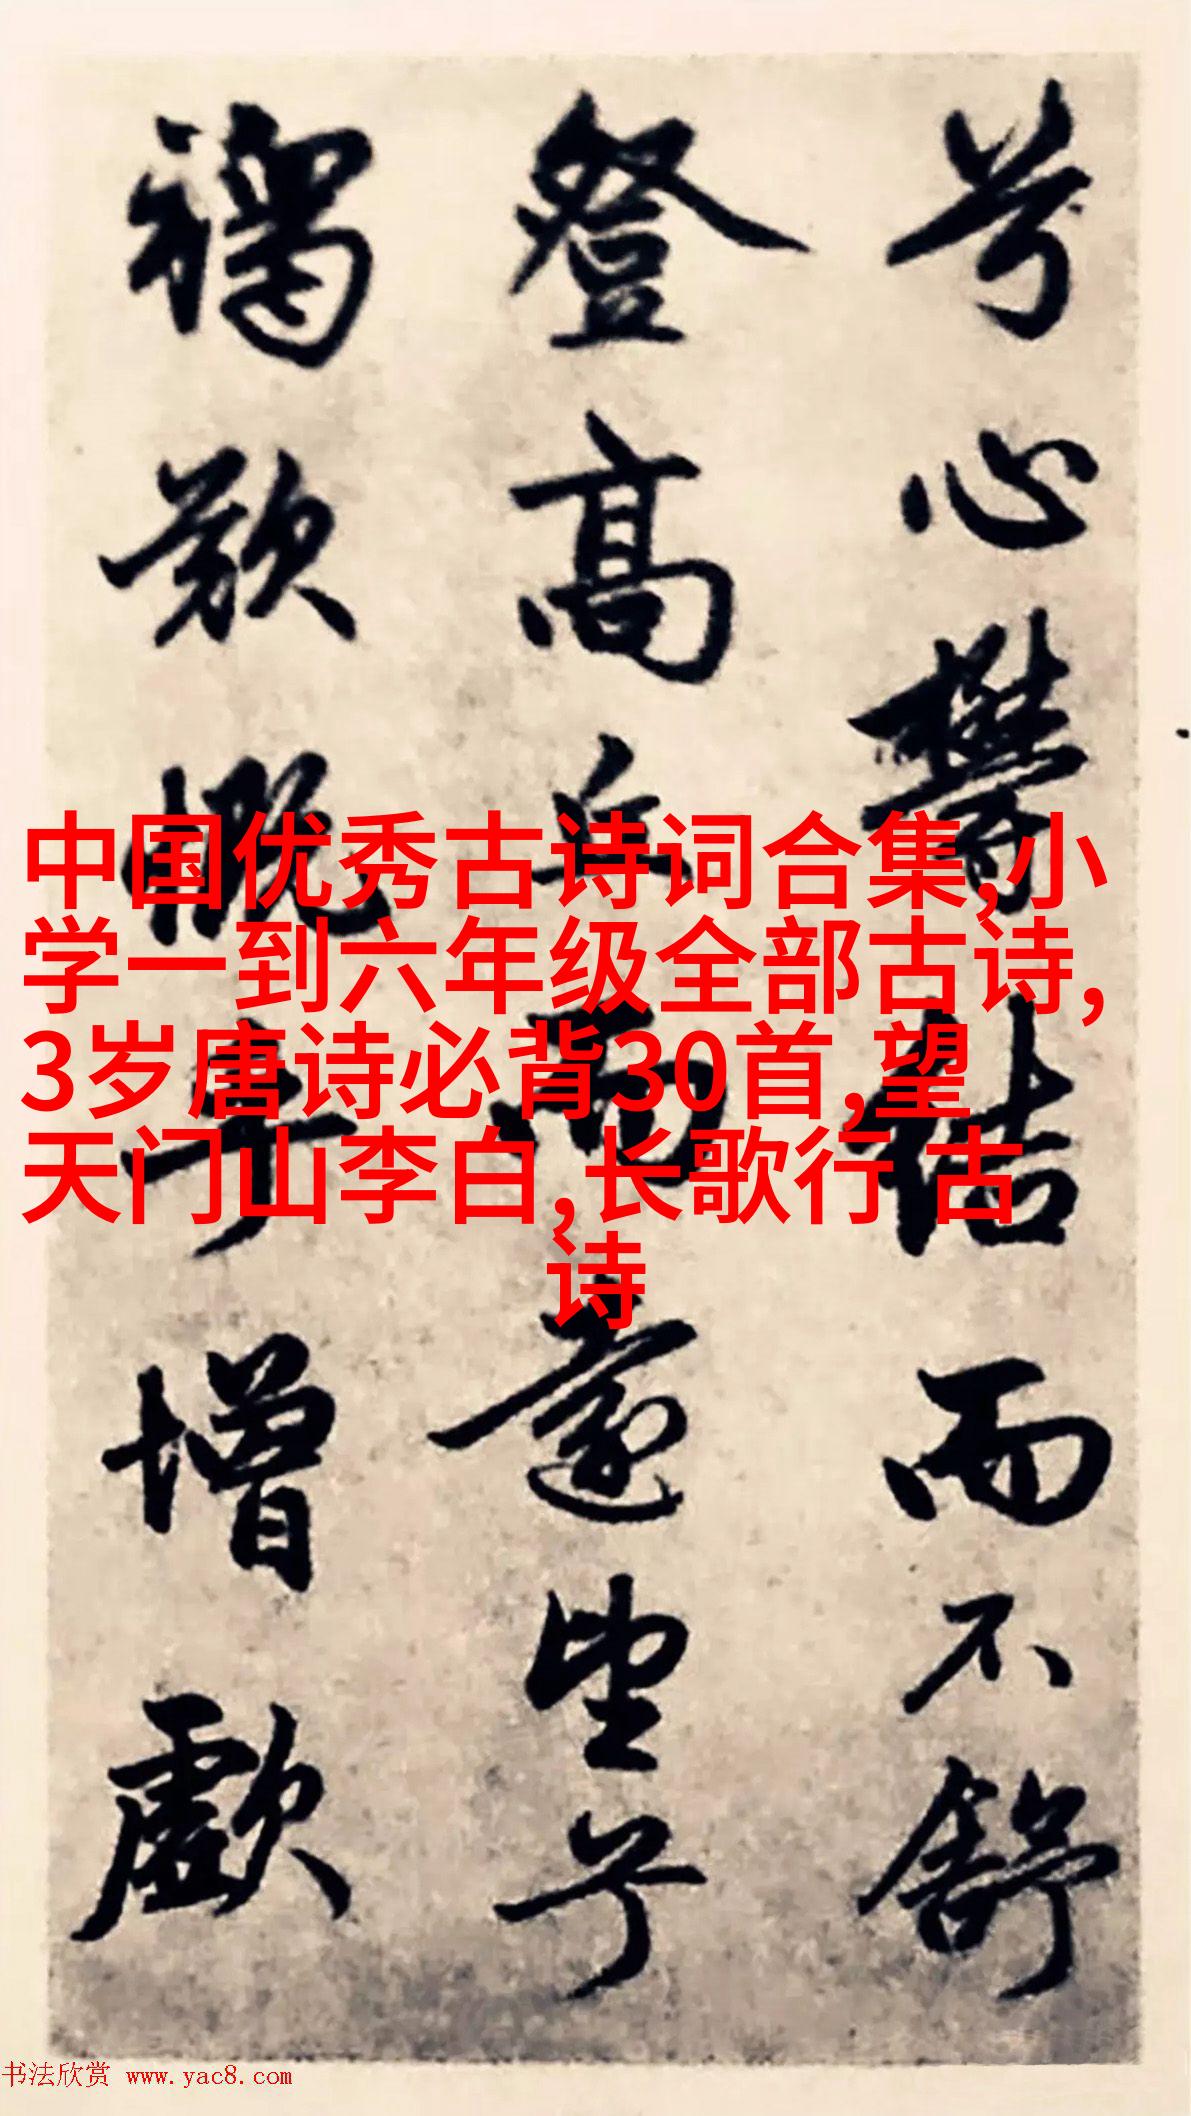 兮心鬱結而不舒
登高丘而遠望兮
中国优秀古诗词合集,小
学一到六年级全部古诗,
3岁唐诗必背30首,望
天门山李白,长歌行 古
诗
书法欣赏 www.yac8.com